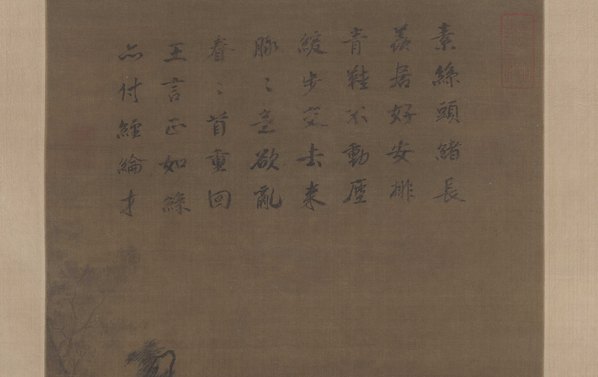 素絲頭緒長
羨居好安排
青鞋不動塵
緩步交去来
脉〻意欲亂
眷〻首重回
王言正如絲
亦付經綸才